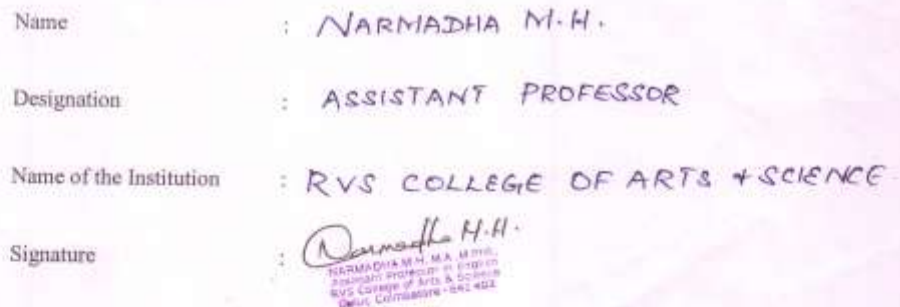 Name : NARMADHA M.H.
Designation : ASSISTANT PROFESSOR
Name of the Institution : RVS COLLEGE OF ARTS & SCIENCE
Signature : Narmadha M.H.
NARMADHA M.H, M.A, M.Phil,
Assistant Professor in English
RVS College of Arts & Science
Sulur, Coimbatore - 641 402